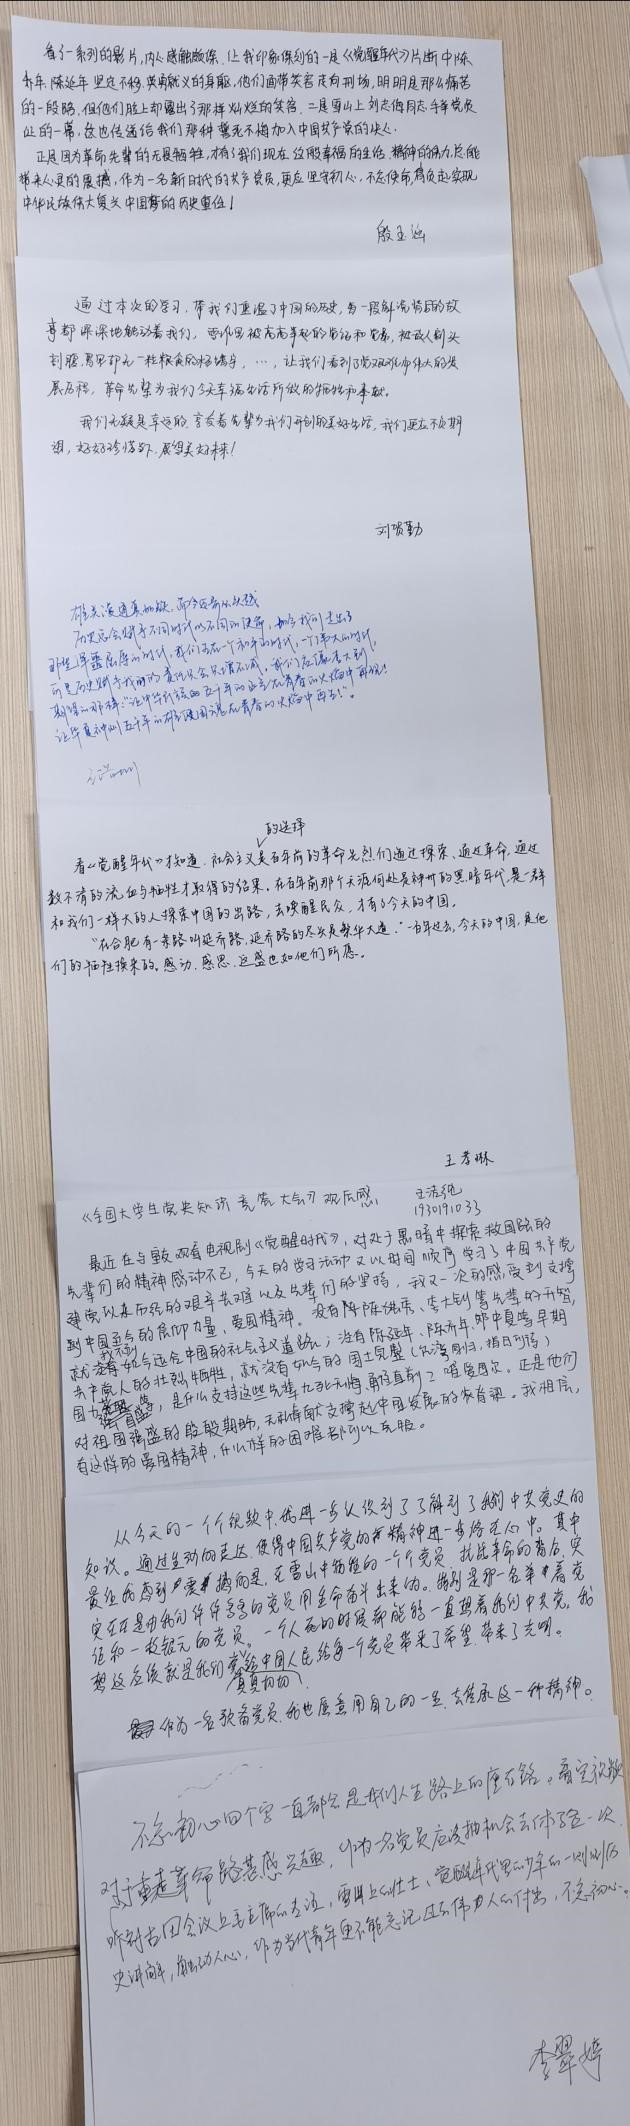 看了一系列的影片,内心感触颇深。让我印象深刻的一是《觉醒年代》片断中陈
乔年、陈延年坚定不移、英勇就义的身躯,他们面带笑容走向刑场,明明是那么痛苦
的一段路,但他们脸上却露出了那样灿烂的笑容。二是雪山上刘志海同志手拿党员
证的一幕,这也传递给我们那种誓死不悔加入中国共产党的决心。
正是因为革命先辈的无畏牺牲,才有了我们现在这般幸福的生活。精神的伟力总能
带来心灵的震撼,作为一名新时代的共产党员,更应坚守初心,不忘使命,肩负起实现
中华民族伟大复兴中国梦的历史重任!
通过本次的学习,带我们重温了中国的历史,每一段解说背后的故
事都深深地触动着我们,
让我们看到了党
展历程,革命先辈为我们今天幸福生活所做的牺牲和奉献。
我们无疑是幸运的,享受着先辈为我们开创的美好生活,我们更应不负期
望,好好珍惜当下,展望美好未来!
雄关漫道真如铁,而今迈步从头越
历史总会赋予不同时代以不同的使命,如今我们走出了
那些
屈辱的时代,我们正在一个和平的时代,一个伟大的时代
可是历史赋予我们的责任只会只增不减,我们应像李大钊
期望的那样:“让中华
五千年的
在青春的火焰中再
让华夏神州五千年的
在青春的火焰中再生!”。
的选择
看《觉醒年代》才知道,社会主义是百年前的革命先烈们通过探索、通过革命,通过
数不清的流血与牺牲才取得的结果。在百年前那个天涯何处是神州的黑暗年代,是一群
和我们一样大的人探索中国的出路,去唤醒民众,才有了今天的中国。
“在合肥有一条路叫延乔路,延乔路的尽头是繁华大道。”一百年过去,今天的中国,是他
们的牺牲换来的。感动、感恩、这盛世如他们所愿。
王孝琳
《全国大学生党史知识竞答大会》观后感
1930191033
最近在与室友观看电视剧《觉醒时代》,对处于黑暗中探索救国路的
先辈们的精神感动不已,今天的学习活动又以时间顺序学习了中国共产党
建党以来历经的艰辛苦难以及先辈们的坚持,我又一次的感受到支撑
到中国至今的信仰力量、爱国精神。没有陈独秀、李大钊等先辈的开智,
我不到
就没有如今适合中国的社会主义道路;没有陈延年、陈乔年、邓中夏等早期
共产党人的壮烈牺牲,就没有如今的国土完整
国力强盛等,是什么支持这些先辈九死无悔、勇往直前?唯爱国尔。正是他们
对祖国强盛的殷殷期盼,无私奉献支撑起中国发展的脊梁。我相信,
有这样的爱国精神,什么样的困难都可以克服。
从今天的一个个视频中,我进一步认识到了了解到了我们中共党史的
知识。通过生动的表达,使得中国共产党的精神进一步落在心中。其中
最让我感到震撼的是,在雪山中牺牲的一个个党员,抗战革命的背后,实
实在在是由我们许许多多的党员用生命奋斗出来的。特别是那一名拿着党
证和一枚银元的党员。一个人死的时候都能够一直想着我们中共党,我
想这应该就是我们党给中国人民给每一个党员带来了希望,带来了光明。
真真切切
作为一名预备党员,我也愿意用自己的一生去传承这一种精神。
不忘初心四个字一直都会是我们人生路上的座右铭。看完视频
对于重走革命路甚感兴趣,作为一名党员应该抽机会去体验一次。
听到古田会议上毛主席的
,雪山上的壮士、觉醒年代里的少年的一
史讲解,触动人心,作为当代青年更不能忘记
伟
人的付出,不忘初心。
李翠婷